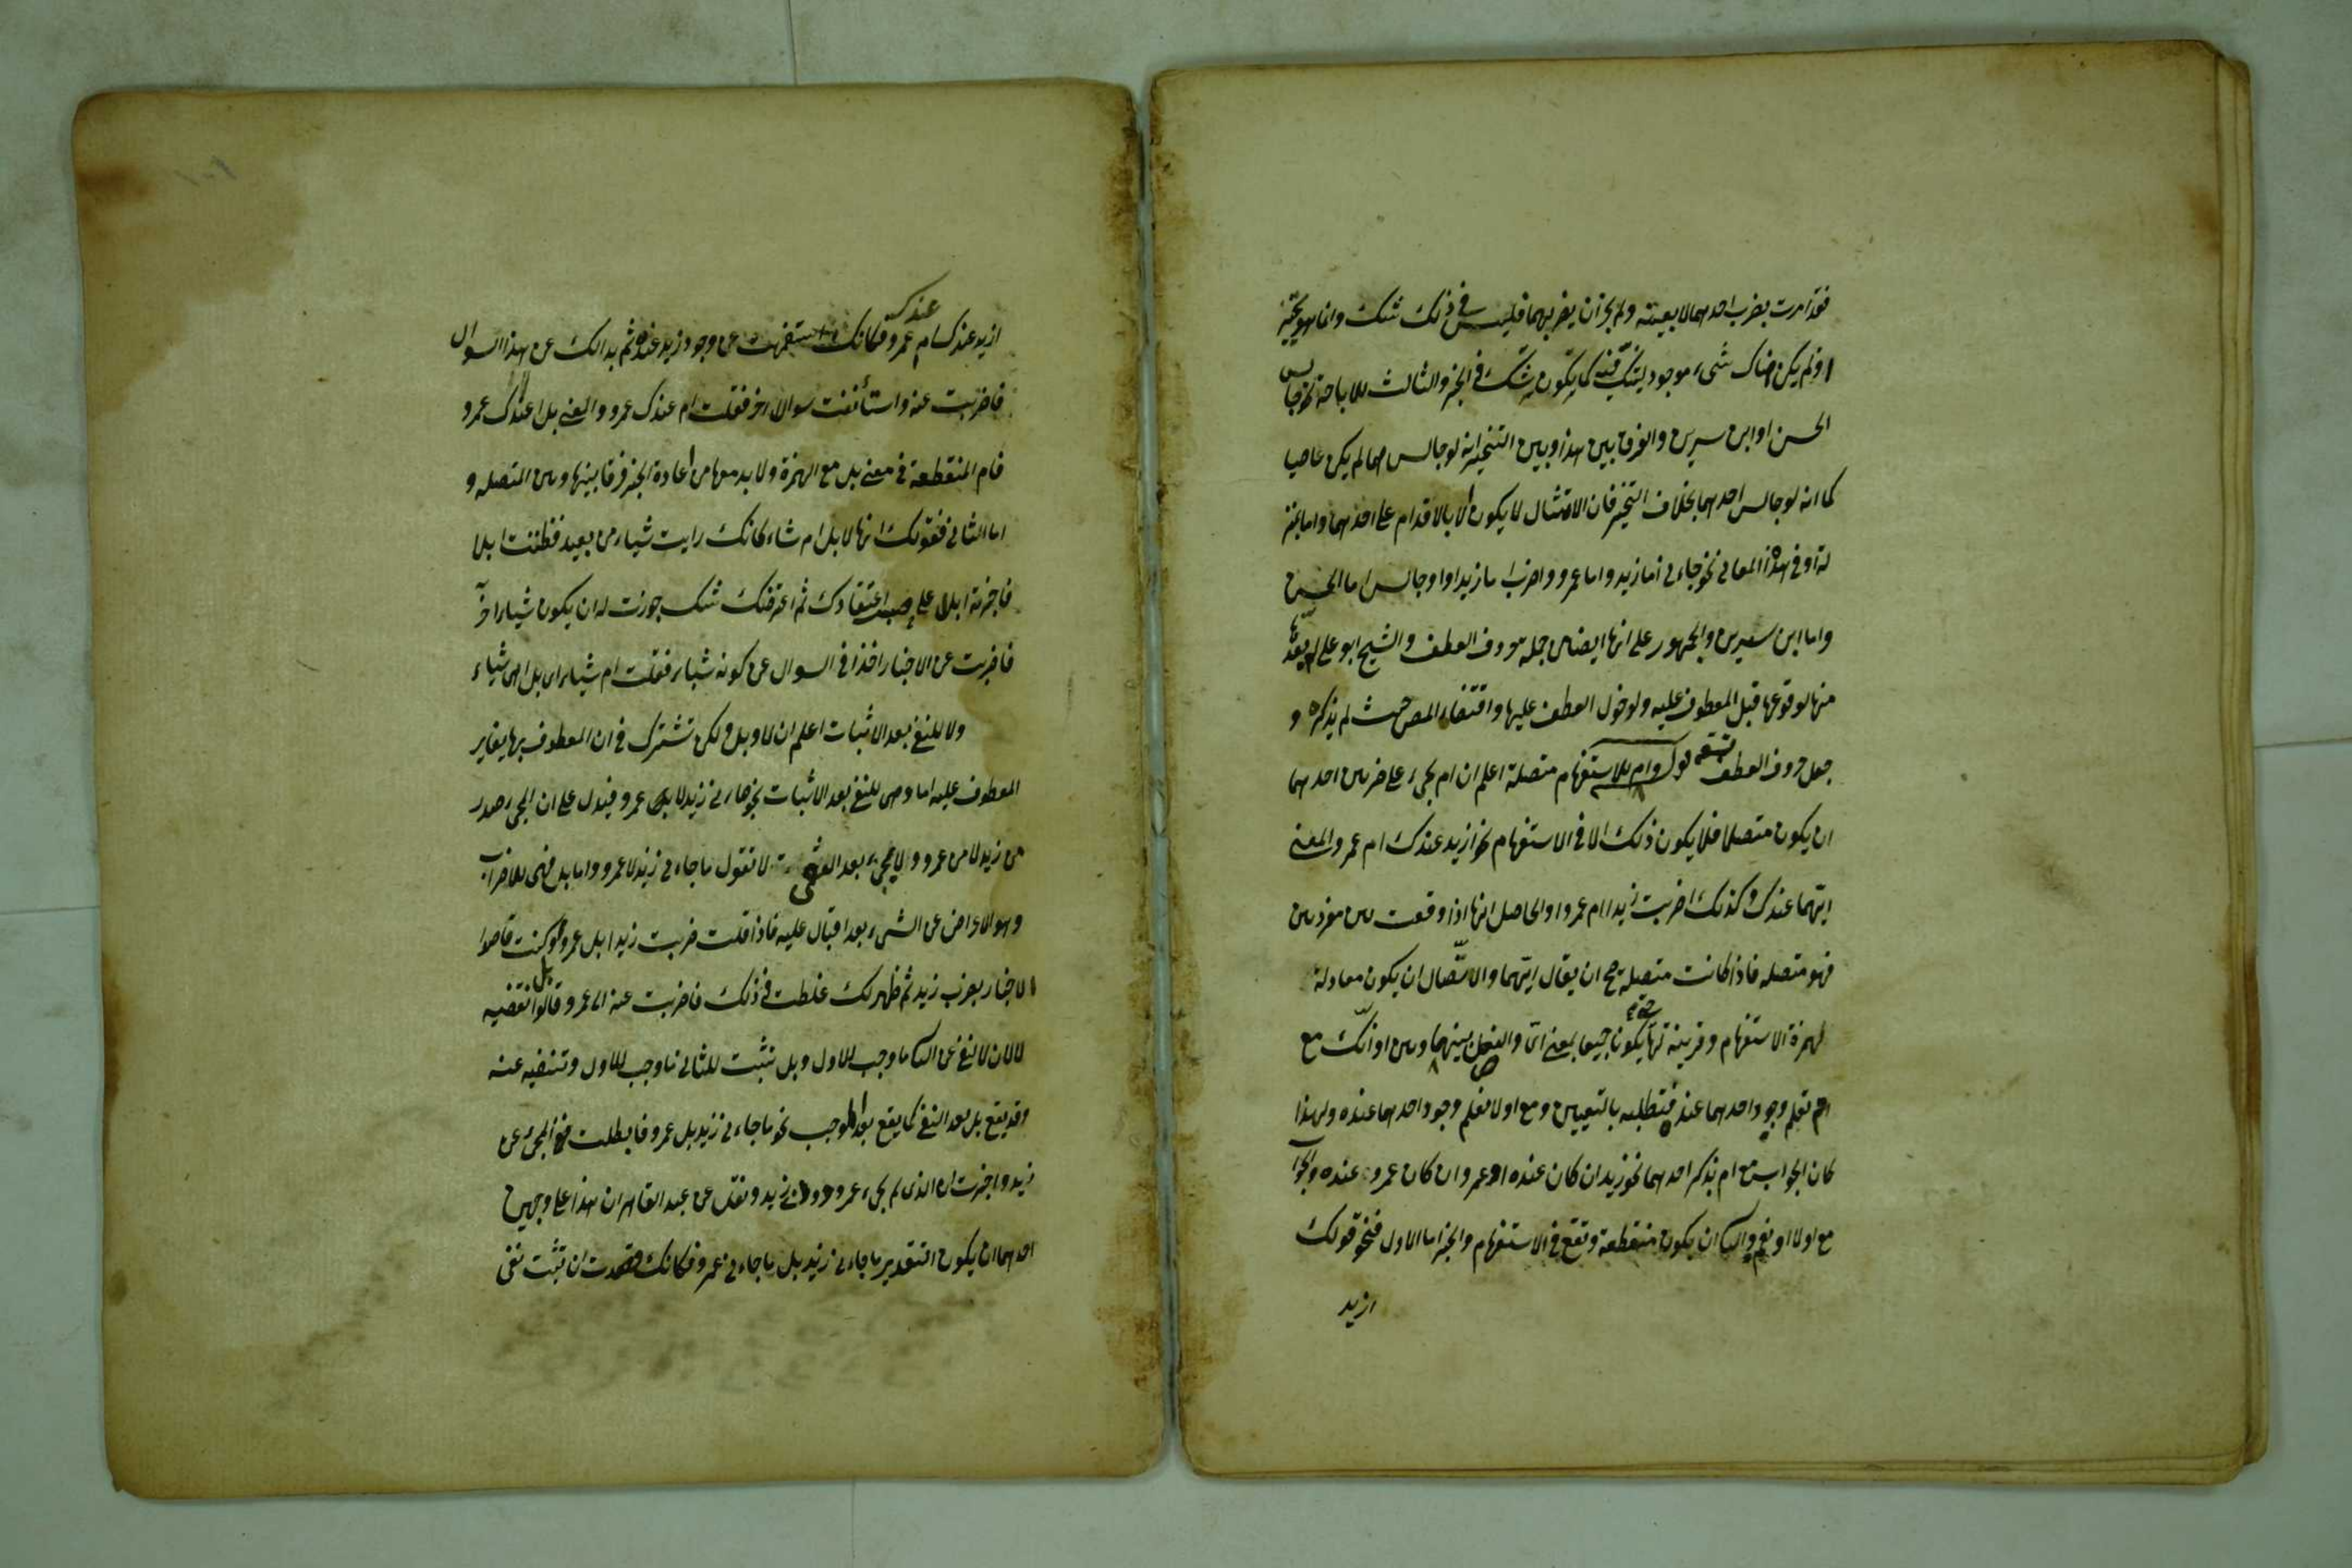 فقد امرت بضرب احدهما لا بعينه ولم يجز ان يضربهما فليس في ذلك شك وانما هو تخيير
اذ لم يكن هناك شيء موجود ليشك فيه كما يكون شك في الخبر والثالث للاباحة نحو جالس
الحسن او ابن سيرين والفرق بين هذا وبين التخيير انه لو جالسهما لم يكن عاصيا
كما انه لو جالس احدهما بخلاف التخيير فان الامتثال لا يكون الا بالاقدام على احدهما واما بمنز
لة او في هذه المعاني نحو جاءني اما زيد واما عمرو واضرب اما زيدا او وجالس اما الحسن
واما ابن سيرين والجمهور على انها ايضا من جملة حروف العطف والشيخ ابو علي لم يعدها
منها لوقوعها قبل المعطوف عليه ولدخول العطف عليها واقتفاه المص حيث لم يذكره و
جعل حروف العطف تسعة قوله وام للاستفهام متصلة اعلم ان ام يجيء على ضربين احدهما
ان يكون متصلا فلا يكون ذلك الا في الاستفهام نحو ازيد عندك ام عمرو والمعنى
ايهما عندك وكذلك اضربت زيدا ام عمروا والحاصل انها اذا وقعت بين مفردين
فهو متصله فاذا كانت متصلة صح ان يقال ايهما والاتصال ان يكون معادلة
لهمزة الاستفهام وقرينة لها حتى يكونا جميعا بمعنى اي والفصل بينهما وبين او انك مع
ام تعلم وجود احدهما عنده فتطلبه بالتعيين ومع او لا تعلم وجود احدهما عنده ولهذا
كان الجواب مع ام بذكر احدهما نحو زيد ان كان عنده او عمرو ان كان عمرو عنده والجواب
مع او لا او نعم والثاني ان يكون منقطعة وتقع في الاستفهام والخبر اما الاول فنحو قولك
ازيد
ازيد عندك ام عمرو عندك فكانك استفهمت عن وجود زيد عنده ثم بدا لك عن هذا السوال
فاضربت عنه واستأنفت سوالا اخر فقلت ام عندك عمرو والمعنى بل اعندك عمرو
فام المنقطعة في معنى بل مع الهمزة ولا بد معها من اعادة الخبر فرقا بينها وبين المتصله و
اما الثاني فقولك انها لابل ام شاء كانك رايت شيئا من بعيد فظننت ابلا
فاخبرت ابلا على حسب اعتقادك ثم اعترضك شك جوزت له ان يكون شيئا اخر
فاضربت عن الاخبار اخذا في السوال عن كونه شيئا فقلت ام شياء اي بل اهي شياء
ولا للنفي بعد الاثبات اعلم ان لا وبل ولكن تشترك في ان المعطوف بها يغاير
المعطوف عليه اما لا وهي للنفي بعد الاثبات نحو جاءني زيد لا عمرو فيدل على ان المجيء صدر
من زيد لا من عمرو ولا يجيء بعد النفي لا تقول ما جاءني زيد لا عمرو واما بل فهي للاضراب
وهو الاعراض عن الشيء بعد اقبال عليه فاذا قلت ضربت زيدا بل عمروا كنت قاصدا
الاخبار بضرب زيد ثم ظهر لك غلطت في ذلك فاضربت عنه الى عمرو قالوا بل نقضيه
لا لان لا لنفي عن الثاني ما وجب للاول وبل تثبت للثاني ما وجب للاول وتنفيه عنه
وقد يقع بل بعد النفي كما يقع بعد الموجب نحو ما جاءني زيد بل عمرو فابطلت نفي المجيء عن
زيد واخبرت ان الذي لم يجيء عمرو دون زيد ونقل عن عبد القاهر ان هذا على وجهين
احدهما ان يكون التقدير ما جاءني زيد بل ما جاءني عمرو فكانك قصدت ان تثبت نفي